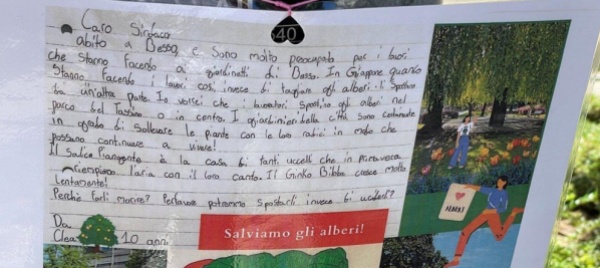 40
Caro Sindaco
abito a Dosso e sono molto preoccupata per i lavori
che stanno facendo a giardinetti di Dosso. In Giappone quando
stanno facendo i lavori così, invece di tagliare gli alberi li spostano
da un'altra parte. Io vorrei che i lavoratori spostino gli alberi nel
parco del Tassino o in centro. I giardinieri della città sono certamente
in grado di sollevare le piante con le loro radici in modo che
possano continuare a vivere!
Il Salice Piangente è la casa di tanti uccelli che in primavera
riempiono l'aria con il loro canto. Il Ginko Biloba cresce molto
lentamente!
Perché farli morire? Perfavore potremmo spostarli invece di ucciderli?
Da
Clea 10 anni
Salviamo gli alberi!